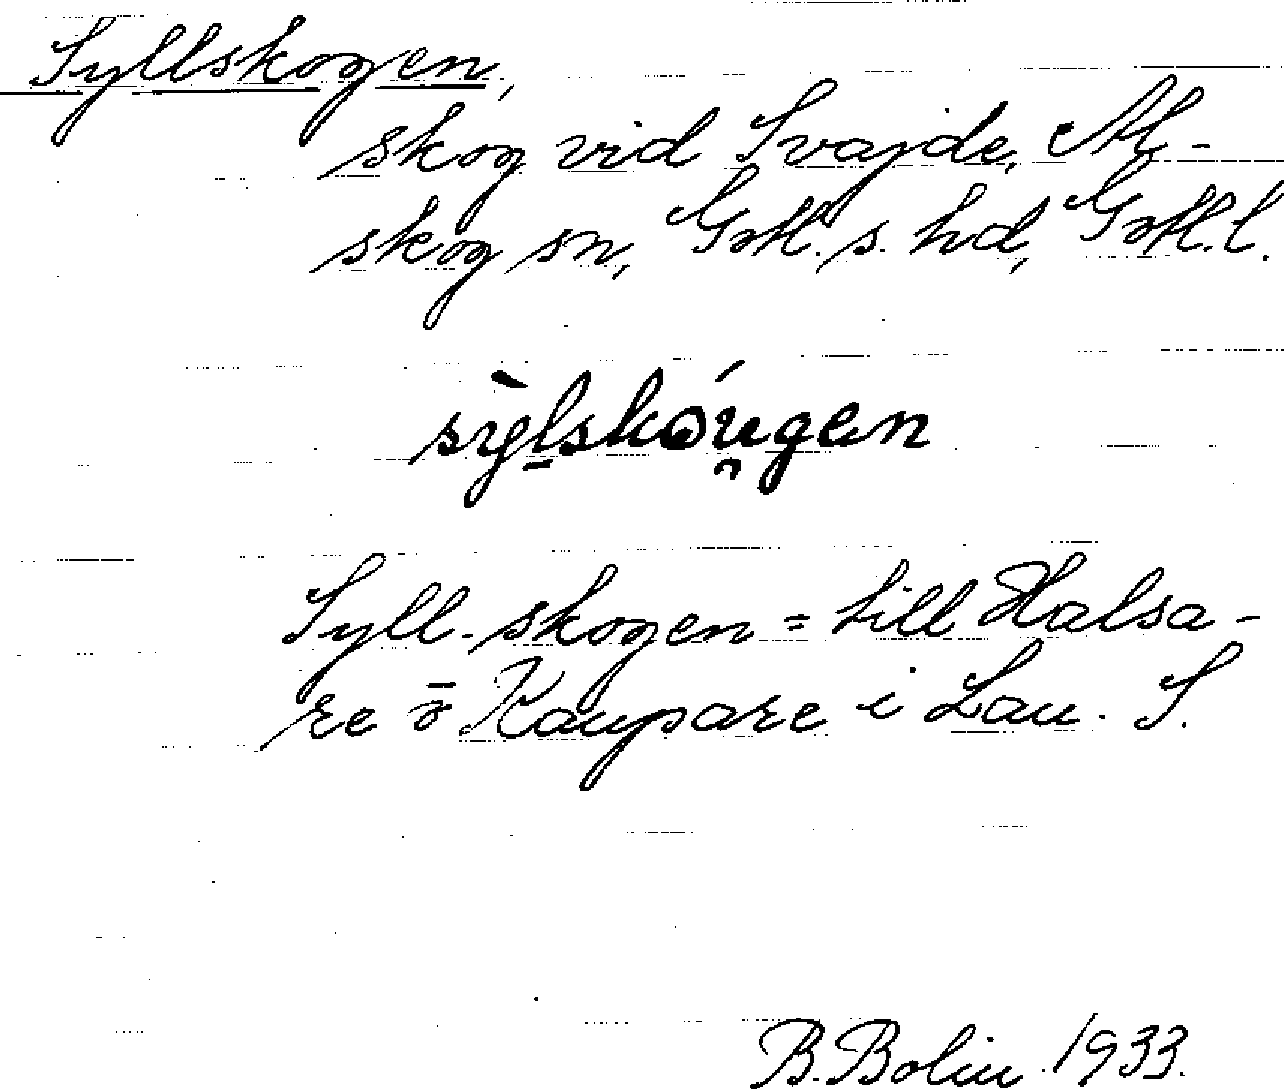 Syllskogen,
skog vid Svajde, Al-
skog sn, Gotl. s. hd, Gotl. l.
sỳl̠skóu̯gen
Syll-skogen = till Halsa-
re o Kaupare i Lau. S.
B. Bolin 1933.